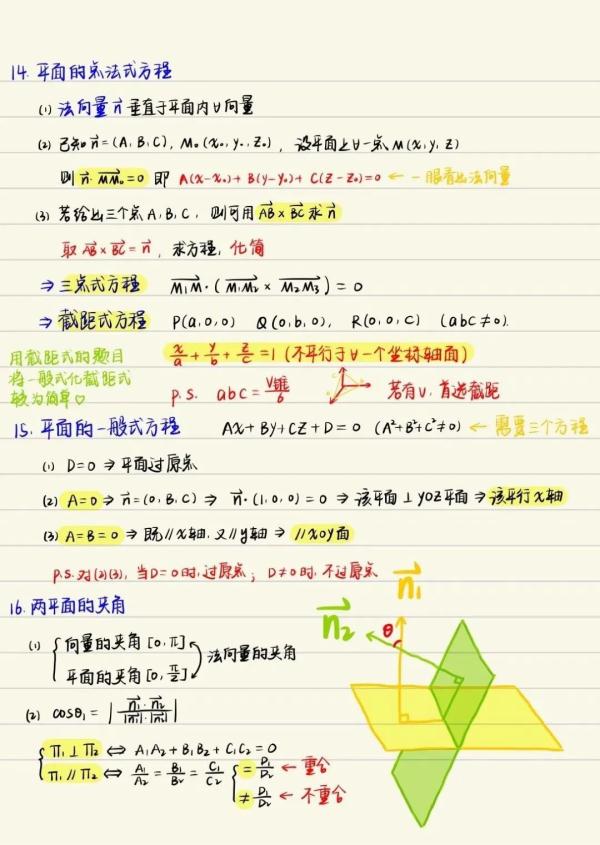 14. 平面的点法式方程
(1) 法向量 n⃗ 垂直于平面内∀向量
(2) 已知 n⃗ = (A, B, C), M₀ (x₀, y₀, z₀), 设平面上∀一点 M(x, y, z)
则 n⃗ · MM₀⃗ = 0 即 A(x-x₀) + B(y-y₀) + C(z-z₀) = 0 ← 一眼看出法向量
(3) 若给出三个点 A, B, C, 则可用 AB⃗ × BC⃗ 求 n⃗
取 AB⃗ × BC⃗ = n⃗, 求方程, 化简
⇒ 三点式方程 M₁M⃗ · (M₁M₂⃗ × M₂M₃⃗) = 0
⇒ 截距式方程 P(a,0,0) Q(0,b,0), R(0,0,c) (abc≠0).
x/a + y/b + z/c = 1 (不平行于∀一个坐标轴面)
用截距式的题目
将一般式化截距式
较为简单♡
p.s. abc = V锥/6 若有V, 首选截距
15. 平面的一般式方程 Ax + By + Cz + D = 0 (A²+B²+C²≠0) ← 需要三个方程
(1) D=0 ⇒ 平面过原点
(2) A=0 ⇒ n⃗ = (0, B, C) ⇒ n⃗ · (1, 0, 0) = 0 ⇒ 该平面⊥yoz平面 ⇒ 该平行x轴
(3) A=B=0 ⇒ 既//x轴, 又//y轴 ⇒ //xoy面
p.s. 对(2)(3), 当D=0时, 过原点; D≠0时, 不过原点
16. 两平面的夹角
(1) { 向量的夹角 [0, π]
平面的夹角 [0, π/2] 法向量的夹角
(2) cosθ₁ = | n₁⃗ · n₂⃗ / |n₁⃗| · |n₂⃗| |
{ Π₁⊥Π₂ ⇔ A₁A₂ + B₁B₂ + C₁C₂ = 0
Π₁//Π₂ ⇔ A₁/A₂ = B₁/B₂ = C₁/C₂ { = D₁/D₂ ← 重合
≠ D₁/D₂ ← 不重合
n₁⃗
n₂⃗
θ